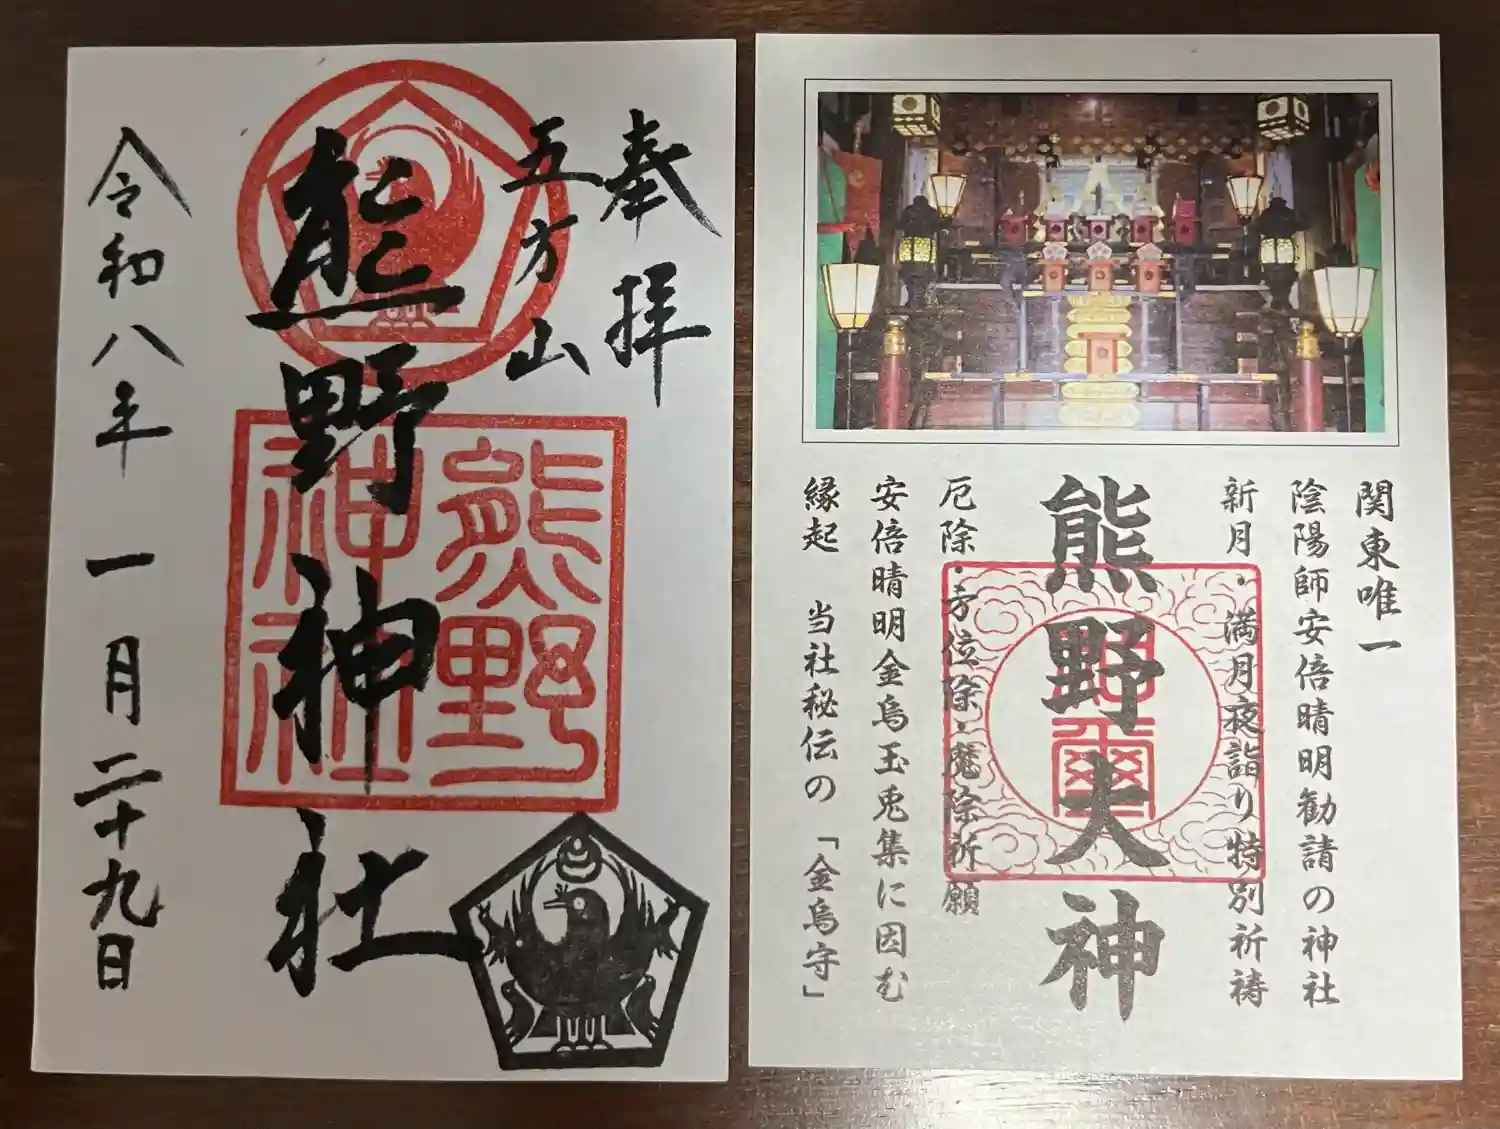 奉拝
五方山
熊野神社
熊野
神社
令和八年一月二十九日
関東唯一
陰陽師安倍晴明勧請の神社
新月・満月夜詣り特別祈祷
熊野大神
厄除・方位除・魔除祈願
安倍晴明金烏玉兎集に因む
縁起 当社秘伝の「金烏守」